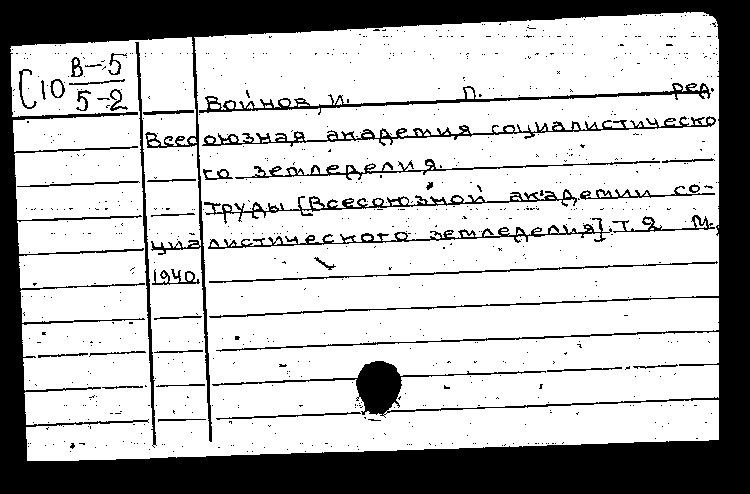 [10 В-5
5-2
Войнов, И. П. ред.
Всесоюзная академия социалистическо
го земледелия.
Труды [Всесоюзной академии со-
циалистического земледелия]. Т. 2 М.,
1940.